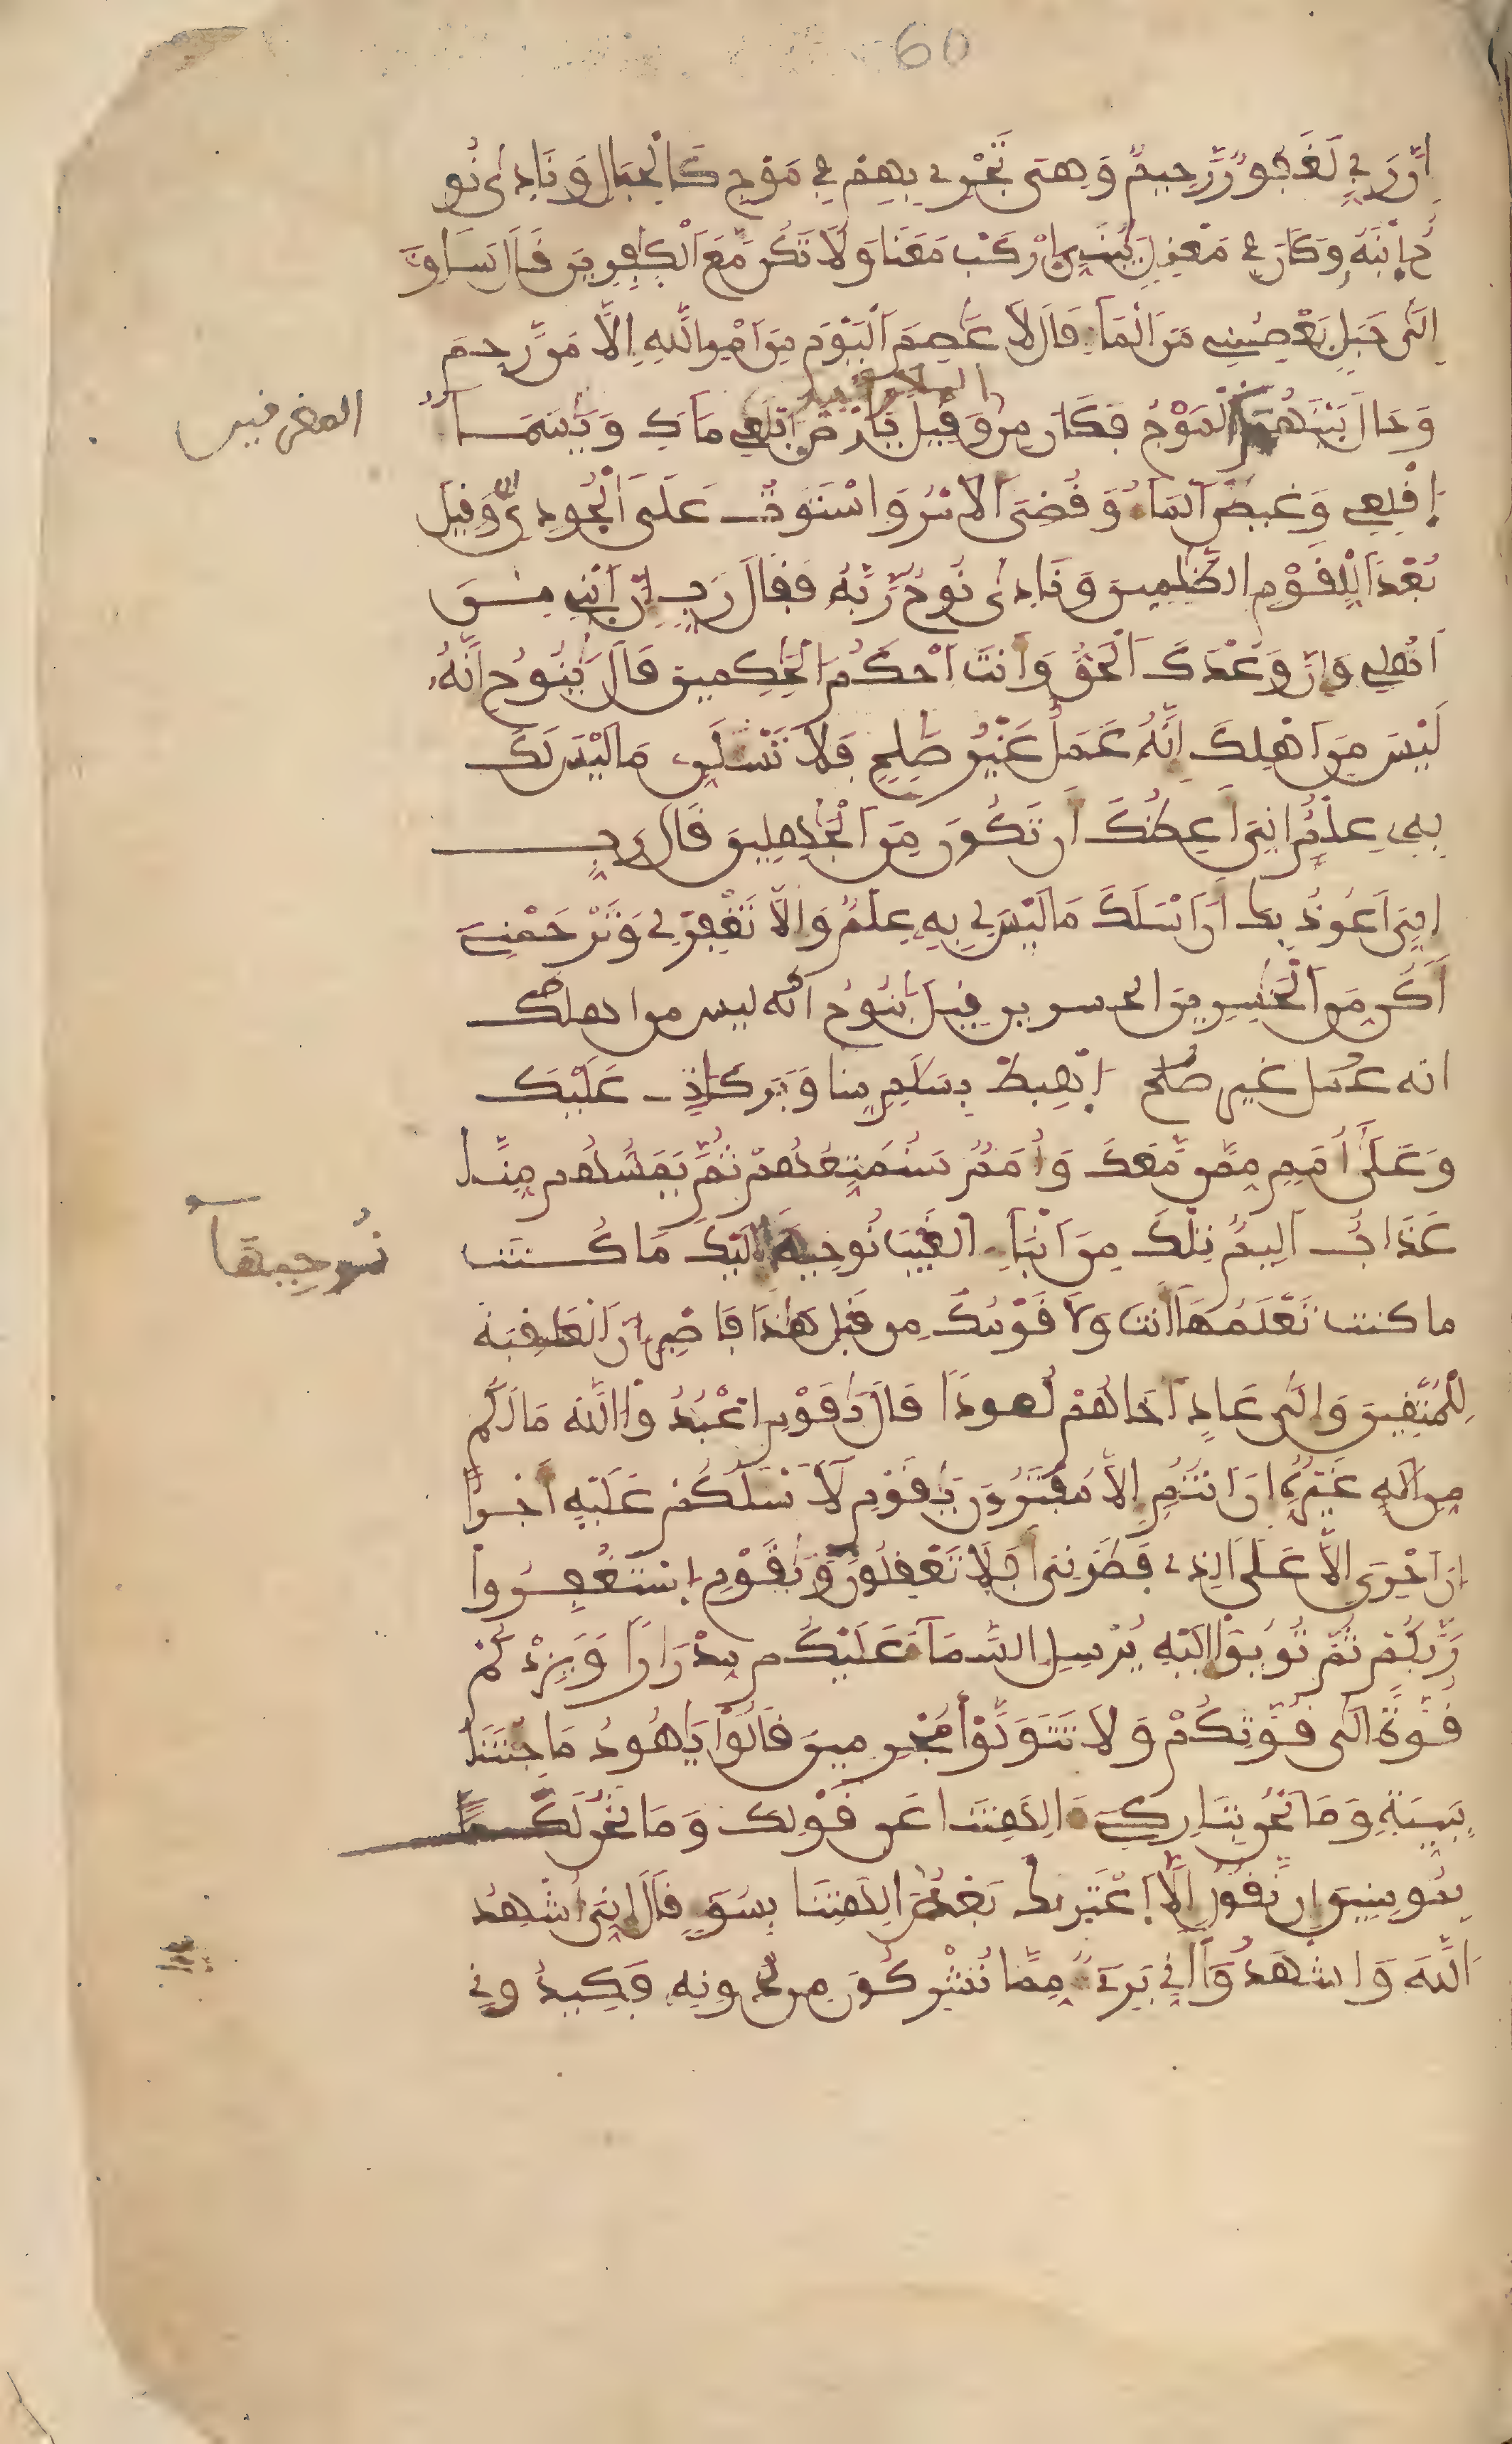 60
اِنَّ رَبِّي لَغَفُورٌ رَّحِيمٌ وَهِىَ تَجْرِے بِهِمْ فِے مَوْجٍ كَالْجِبَالِ وَنَادٜىٰ نُو
حٌ اِبْنَهُۥ وَكَانَ فِے مَعْزِلٍ يَٰبُنَيِّ اِرْكَب مَّعَنَا وَلَا تَكُن مَّعَ اَلْكٰفِرِينَ قَالَ سَـَٔاوِےٓ
اِلَىٰ جَبَلٍ يَعْصِمُنِے مِنَ اَلْمَآءِ قَالَ لَا عَاصِمَ اَلْيَوْمَ مِنَ اَمْرِ اللَّهِ اِلَّا مَن رَّحِمَ
وَحَالَ بَيْنَهُمَا اَلْمَوْجُ فَكَانَ مِنَ وَقِيلَ يَٰأَرْضُ اِبْلَعِے مَآءَكِ وَيَٰسَمَآءُ
المغرفين
اَقْلِعِے وَغِيضَ اَلْمَآءُ وَقُضِىَ اَلَامْرُ وَاسْتَوَتْ عَلَى اَلْجُودِىِّ وَقِيلَ
بُعْدًا لِّلْقَوْمِ الظَّٰلِمِينَ وَنَادٜىٰ نُوحٌ رَّبَّهُۥ فَقَالَ رَبِّ إِنَّ اَبْنِے مِنَ
اَهْلِے وَإِنَّ وَعْدَكَ اَلْحَقُّ وَأَنتَ أَحْكَمُ اَلْحَٰكِمِينَ قَالَ يَٰنُوحُ إِنَّهُۥ
لَيْسَ مِنَ اَهْلِكَ إِنَّهُۥ عَمَلٌ غَيْرُ صَٰلِحٍ فَلَا تَسْـَٔلَنِّ مَا لَيْسَ لَكَ
بِهِۦ عِلْمٌ اِنِّىَ أَعِظُكَ أَن تَكُونَ مِنَ اَلْجَٰهِلِينَ قَالَ رَبِّ
إِنِّىَ أَعُوذُ بِكَ أَنَ اَسْـَٔلَكَ مَا لَيْسَ لِے بِهِۦ عِلْمٌ وَإِلَّا تَغْفِرْ لِے وَتَرْحَمْنِے
أَكُن مِّنَ اَلْخَٰسِرِينَ الخسرين قِيلَ يَٰنُوحُ انه ليس من اهلك
انه عمل غير صلح إِهْبِطْ بِسَلَٰمٍ مِّنَّا وَبَرَكَٰتٍ عَلَيْكَ
وَعَلَىٰ أُمَمٍ مِّمَّن مَّعَكَ وَأُمَمٌ سَنُمَتِّعُهُمْ ثُمَّ يَمَسُّهُم مِّنَّا
عَذَابٌ اَلِيمٌ تِلْكَ مِنَ اَنۢبَآءِ اَلْغَيْبِ نُوحِيهَآ إِلَيْكَ مَا كُنتَ
نُوحِيهَآ
ما كنت تَعْلَمُهَآ أَنتَ وَلَا قَوْمُكَ مِن قَبْلِ هَٰذَا فَاصْبِرِ اِنَّ اَلْعَٰقِبَةَ
لِلْمُتَّقِينَ وَإِلَىٰ عَادٍ اَخَاهُمْ هُودًا قَالَ يَٰقَوْمِ اِعْبُدُوا اللَّهَ مَا لَكُم
مِّنِ اِلَٰهٍ غَيْرُهُۥ إِنَ اَنتُمُۥ إِلَّا مُفْتَرُونَ يَٰقَوْمِ لَآ أَسْـَٔلُكُمْ عَلَيْهِ أَجْرًا
اِنَ اَجْرِىَ إِلَّا عَلَى اَلذِے فَطَرَنِىَ أَفَلَا تَعْقِلُونَ وَيَٰقَوْمِ اِسْتَغْفِرُوا
رَبَّكُمْ ثُمَّ تُوبُوٓا إِلَيْهِ يُرْسِلِ السَّمَآءَ عَلَيْكُم مِّدْرَارًا وَيَزِدْكُمْ
قُوَّةً اِلَىٰ قُوَّتِكُمْ وَلَا تَتَوَلَّوْا مُجْرِمِينَ قَالُوا يَٰهُودُ مَا جِئْتَنَا
بِبَيِّنَةٍ وَمَا نَحْنُ بِتَارِكِےٓ ءَالِهَتِنَا عَن قَوْلِكَ وَمَا نَحْنُ لَكَ
بِمُومِنِينَ إِن نَّقُولُ إِلَّا اَعْتَرٜىٰكَ بَعْضُ ءَالِهَتِنَا بِسُوٓءٍ قَالَ إِنِّىَ أُشْهِدُ
اللَّهَ وَاشْهَدُوٓا أَنِّے بَرِےٓءٌ مِّمَّا تُشْرِكُونَ مِن دُونِهِۦ فَكِيدُونِے